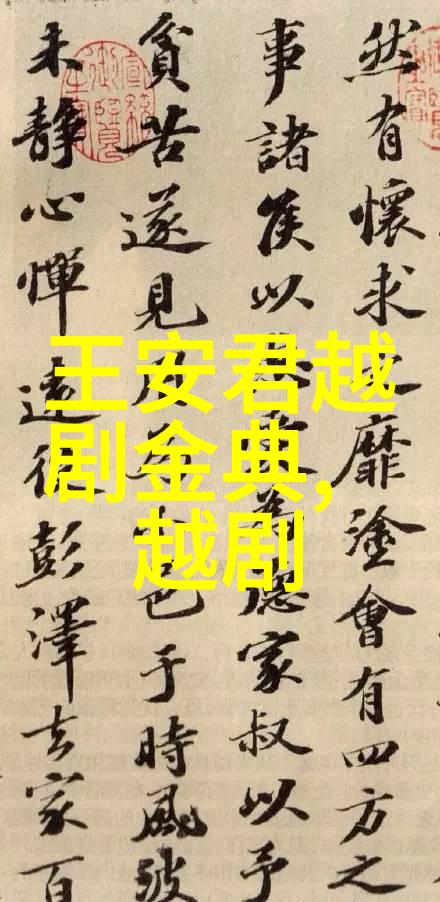 王安君越
剧金典,
越剧
然有懷求靡塗會有四方之
事諸侯以德家叔以予
貧苦遂見邑于時風波
未靜心憚遠役彭澤去家百